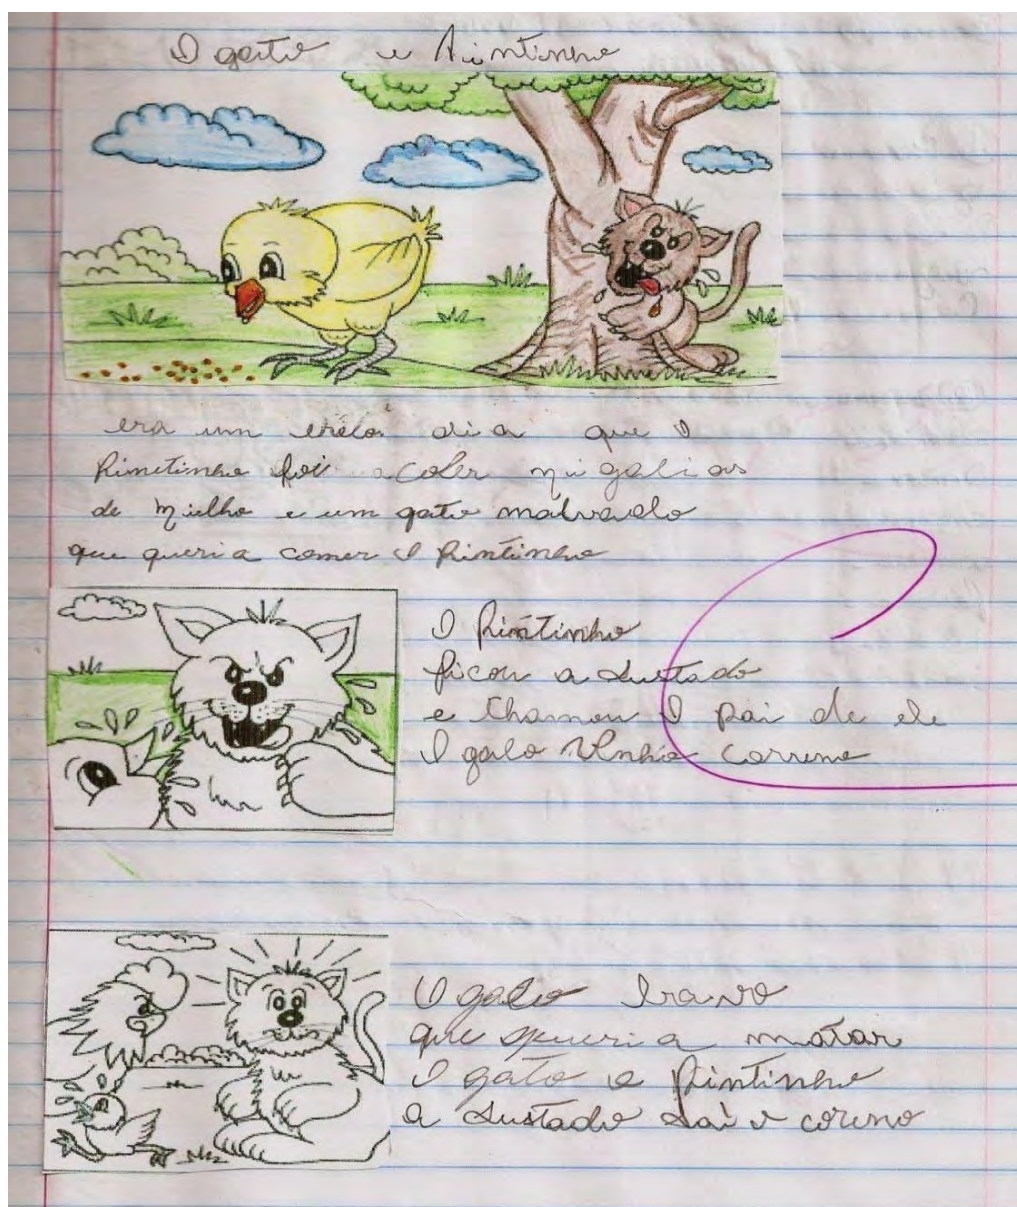 O gato e Pintinho
era um belo dia que O
Pintinho foi acoler migalias
de milho e um gato malvado
que queria comer O Pintinho
O Pintinho
ficou a sustado
e Chamou O pai de ele
O galo Vinhio correno
O galo bravo
que queria matar
O gato e Pintinho
a sustado saiu coreno